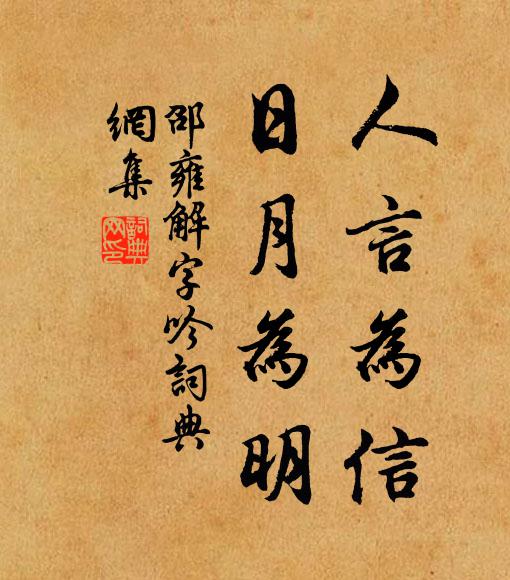 人言為信
日月為明
邵雍解字吟詞典
網集
詞典
网印